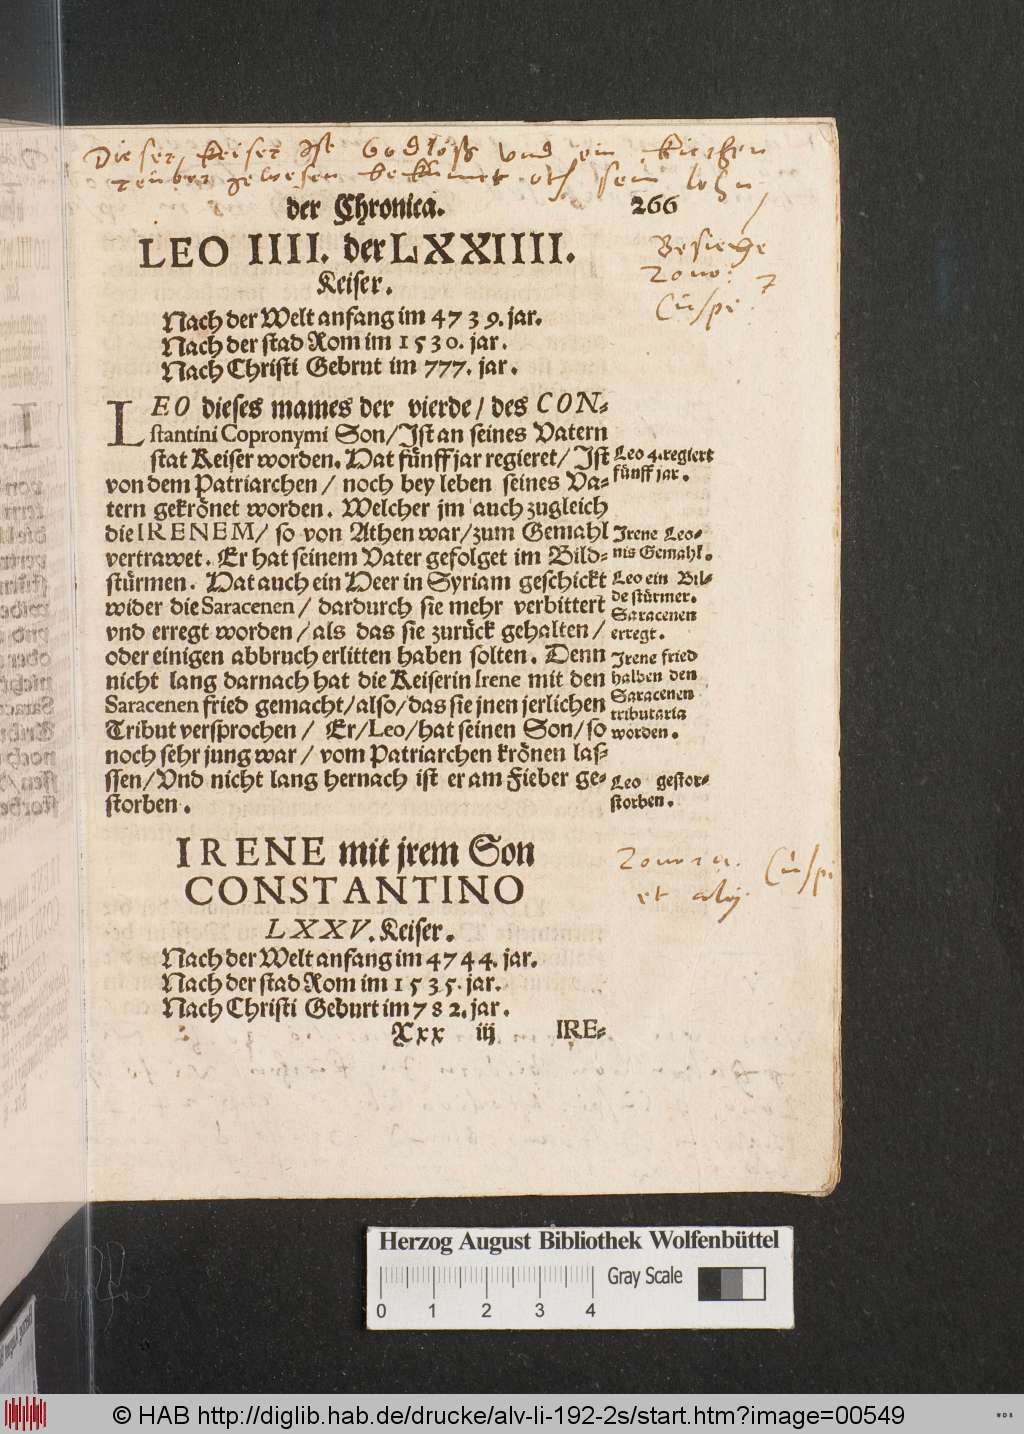 Dieser keiser Ist Godloss vnd ein kirchen
reuber gewesen bekumet och sein lohn
der Chronica. 266
LEO IIII. der LXXIIII.
Keiser.
Nach der Welt anfang im 4739. jar.
Nach der stad Rom im 1530. jar.
Nach Christi Gebrut im 777. jar.
Besiehe
Zono:
Cuspi
LEO dieses mames der vierde / des CON-
stantini Copronymi Son / Ist an seines Vatern
stat Keiser worden. Hat fünff jar regieret / Ist
von dem Patriarchen / noch bey leben seines Va-
tern gekrönet worden. Welcher jm auch zugleich
die IRENEM / so von Athen war / zum Gemahl
vertrawet. Er hat seinem Vater gefolget im Bild-
stürmen. Hat auch ein Heer in Syriam geschickt
wider die Saracenen / dardurch sie mehr verbittert
vnd erregt worden / als das sie zurück gehalten /
oder einigen abbruch erlitten haben solten. Denn
nicht lang darnach hat die Keiserin Irene mit den
Saracenen fried gemacht / also / das sie jnen jerlichen
Tribut versprochen / Er / Leo / hat seinen Son / so
noch sehr jung war / vom Patriarchen krönen las-
ssen / Vnd nicht lang hernach ist er am Fieber ge-
storben.
Leo 4. regiert
fünff jar.
Irene Leo-
nis Gemahl.
Leo ein Bil-
de stürmer.
Saracenen
erregt.
Irene fried
halben den
Saracenen
tributaria
worden.
Leo gestor-
storben.
IRENE mit jrem Son
CONSTANTINO
LXXV. Keiser.
Nach der Welt anfang im 4744. jar.
Nach der stad Rom im 1535. jar.
Nach Christi Geburt im 782. jar.
Zonora. Cuspi
et alij
Xxx iij IRE-
Herzog August Bibliothek Wolfenbüttel
Gray Scale
0 1 2 3 4
© HAB http://diglib.hab.de/drucke/alv-li-192-2s/start.htm?image=00549